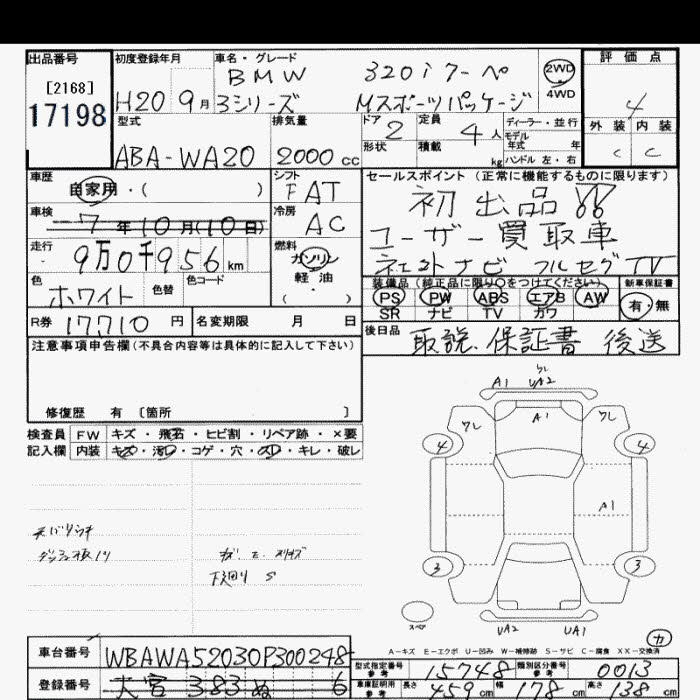 出品番号 [2168] 17198
初度登録年月 H20 9月
車名・グレード BMW 320i クーペ
3シリーズ Mスポーツパッケージ
2WD
4WD
評価点 4
外装 内装
C C
型式 ABA-WA20
排気量 2000cc
ドア 2 形状
定員 4人
積載 kg
ディーラー・並行
モデル年式 年
ハンドル 左・右
車歴 自家用・( )
シフト FAT
車検 7年10月(10日)
冷房 AC
走行 9万0千956km
燃料 ガソリン
軽油
( )
色 ホワイト 色替 色コード
R券 17710円 名変期限 月 日
セールスポイント(正常に機能するものに限ります)
初出品
ユーザー買取車
フルセグTV
装備品(純正品に限り○をつけてください) 新車保証書
PS PW ABS エアB AW 有・無
SR ナビ TV カワ
後日品 取説、保証書 後送
注意事項申告欄(不具合内容等は具体的に記入して下さい)
修復歴 有 〔箇所 〕
検査員 FW キズ・飛石・ヒビ割・リペア跡・×要
記入欄 内装 キズ・汚れ・コゲ・穴・スレ・キレ・破レ
下廻り S
A1 UA2
ワレ A1 ワレ
4 4
A1
3 3
スペア UA2 UA1
A-キズ E-エクボ U-凹み W-補修跡 S-サビ C-腐食 XX-交換済
カ
車台番号 WBAWA52030P300248
登録番号 大宮 383 ぬ 6
型式指定番号 参考 15748 類別区分番号 参考 0013
車庫証明用 参考 長さ 459cm 幅 178cm 高さ 138cm